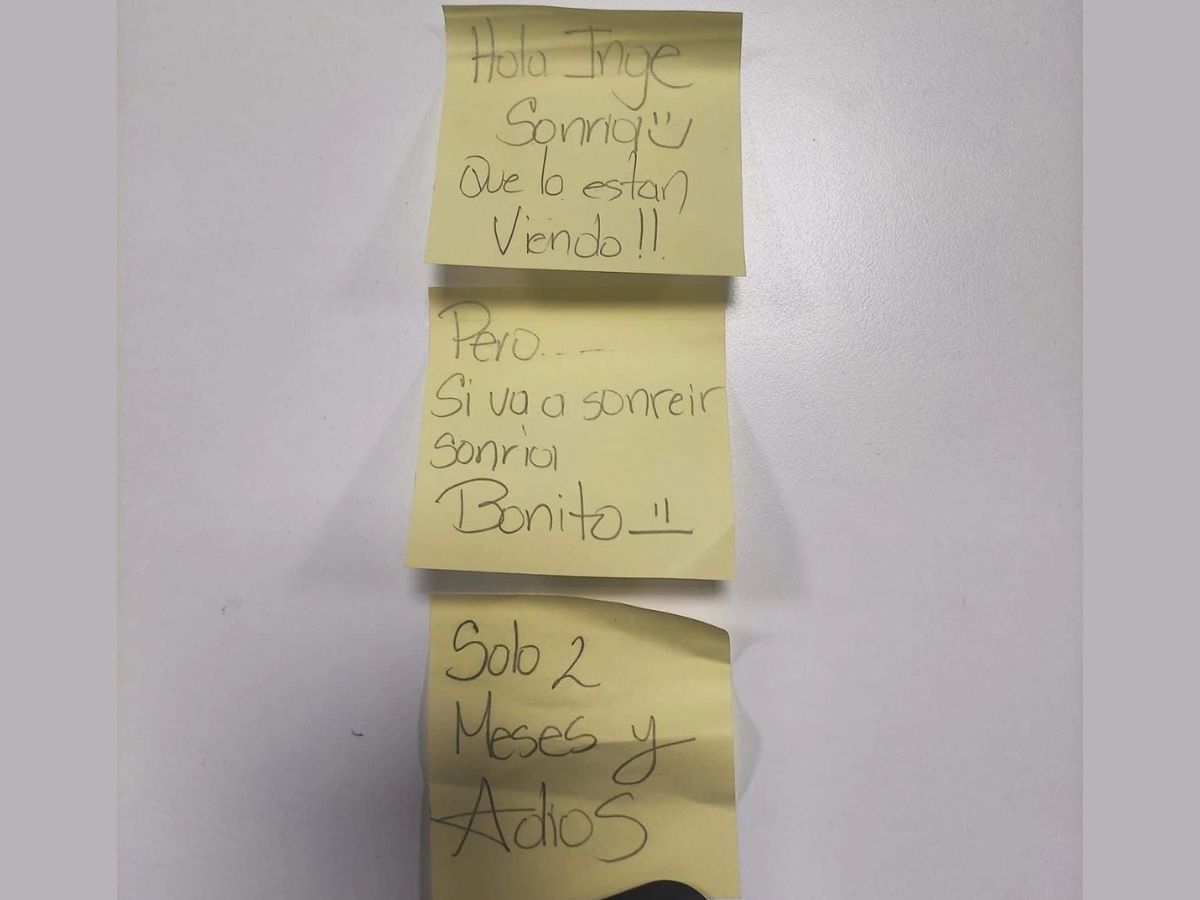 Hola Inge
Sonria
Que lo estan
Viendo!!
Pero.....
Si va a sonreir
sonria
Bonito
Solo 2
Meses y
Adios